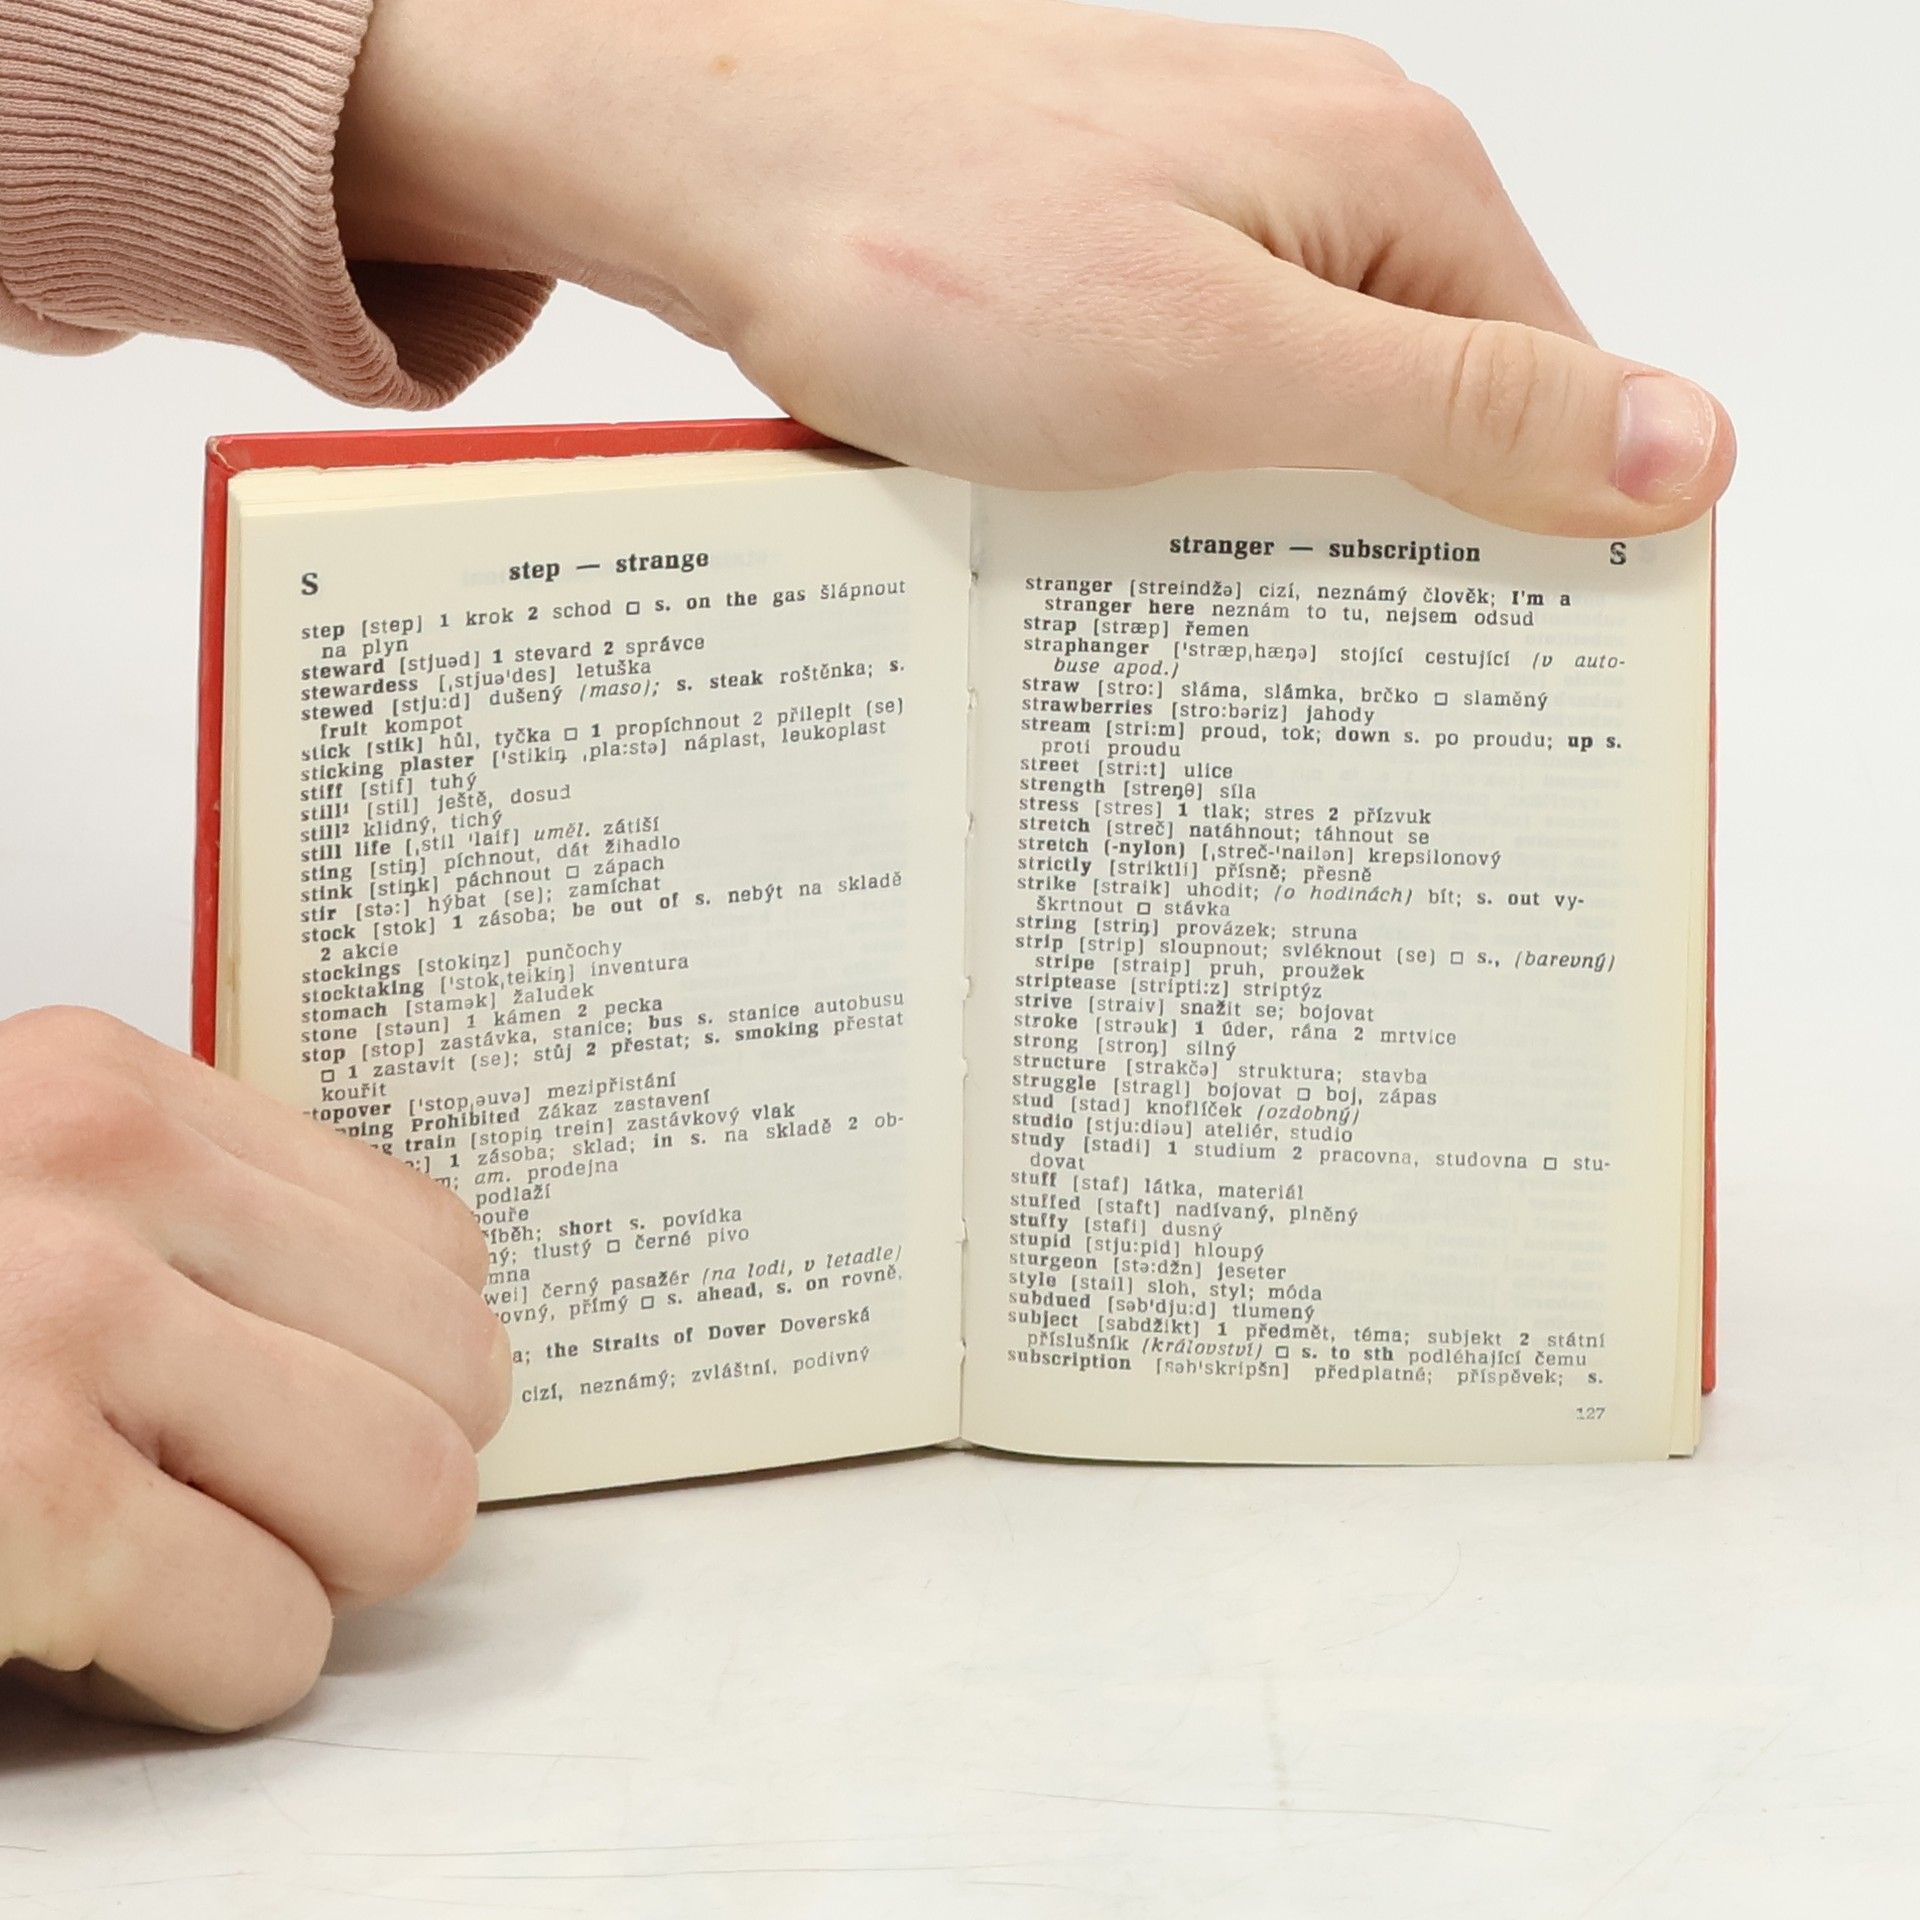 S
step — strange
step [step] 1 krok 2 schod □ s. on the gas šlápnout
na plyn
steward [stjuəd] 1 stevard 2 správce
stewardess [ˌstjuəˈdes] letuška
stewed [stju:d] dušený (maso); s. steak roštěnka; s.
fruit kompot
stick [stik] hůl, tyčka □ 1 propíchnout 2 přilepit (se)
sticking plaster [ˈstikiŋ ˌpla:stə] náplast, leukoplast
stiff [stif] tuhý
still¹ [stil] ještě, dosud
still² klidný, tichý
still life [ˌstil ˈlaif] uměl. zátiší
sting [stiŋ] píchnout, dát žihadlo
stink [stiŋk] páchnout □ zápach
stir [stə:] hýbat (se); zamíchat
stock [stok] 1 zásoba; be out of s. nebýt na skladě
2 akcie
stockings [stokiŋz] punčochy
stocktaking [ˈstokˌteikiŋ] inventura
stomach [stamək] žaludek
stone [stəun] 1 kámen 2 pecka
stop [stop] zastávka, stanice; bus s. stanice autobusu
□ 1 zastavit (se); stůj 2 přestat; s. smoking přestat
kouřit
topover [ˈstopˌəuvə] mezipřistání
pping Prohibited Zákaz zastavení
g train [stopiŋ trein] zastávkový vlak
1 zásoba; sklad; in s. na skladě 2 ob-
am. prodejna
podlaží
bouře
íběh; short s. povídka
ný; tlustý □ černé pivo
mna
wei] černý pasažér (na lodi, v letadle)
rovný, přímý □ s. ahead, s. on rovně,
a; the Straits of Dover Doverská
cizí, neznámý; zvláštní, podivný
stranger — subscription
S
stranger [streindžə] cizí, neznámý člověk; I'm a
stranger here neznám to tu, nejsem odsud
strap [stræp] řemen
straphanger [ˈstræpˌhæŋə] stojící cestující (v auto-
buse apod.)
straw [stro:] sláma, slámka, brčko □ slaměný
strawberries [stro:bəriz] jahody
stream [stri:m] proud, tok; down s. po proudu; up s.
proti proudu
street [stri:t] ulice
strength [streŋθ] síla
stress [stres] 1 tlak; stres 2 přízvuk
stretch [streč] natáhnout; táhnout se
stretch (-nylon) [ˌstreč-ˈnailən] krepsilonový
strictly [striktli] přísně; přesně
strike [straik] uhodit; (o hodinách) bít; s. out vy-
škrtnout □ stávka
string [striŋ] provázek; struna
strip [strip] sloupnout; svléknout (se) □ s., (barevný)
stripe [straip] pruh, proužek
striptease [stripti:z] striptýz
strive [straiv] snažit se; bojovat
stroke [strəuk] 1 úder, rána 2 mrtvice
strong [stroŋ] silný
structure [strakčə] struktura; stavba
struggle [stragl] bojovat □ boj, zápas
stud [stad] knoflíček (ozdobný)
studio [stju:diəu] ateliér, studio
study [stadi] 1 studium 2 pracovna, studovna □ stu-
dovat
stuff [staf] látka, materiál
stuffed [staft] nadívaný, plněný
stuffy [stafi] dusný
stupid [stju:pid] hloupý
sturgeon [stə:džn] jeseter
style [stail] sloh, styl; móda
subdued [səbˈdju:d] tlumený
subject [sabdžikt] 1 předmět, téma; subjekt 2 státní
příslušník (království) □ s. to sth podléhající čemu
subscription [səbˈskripšn] předplatné; příspěvek; s.
127